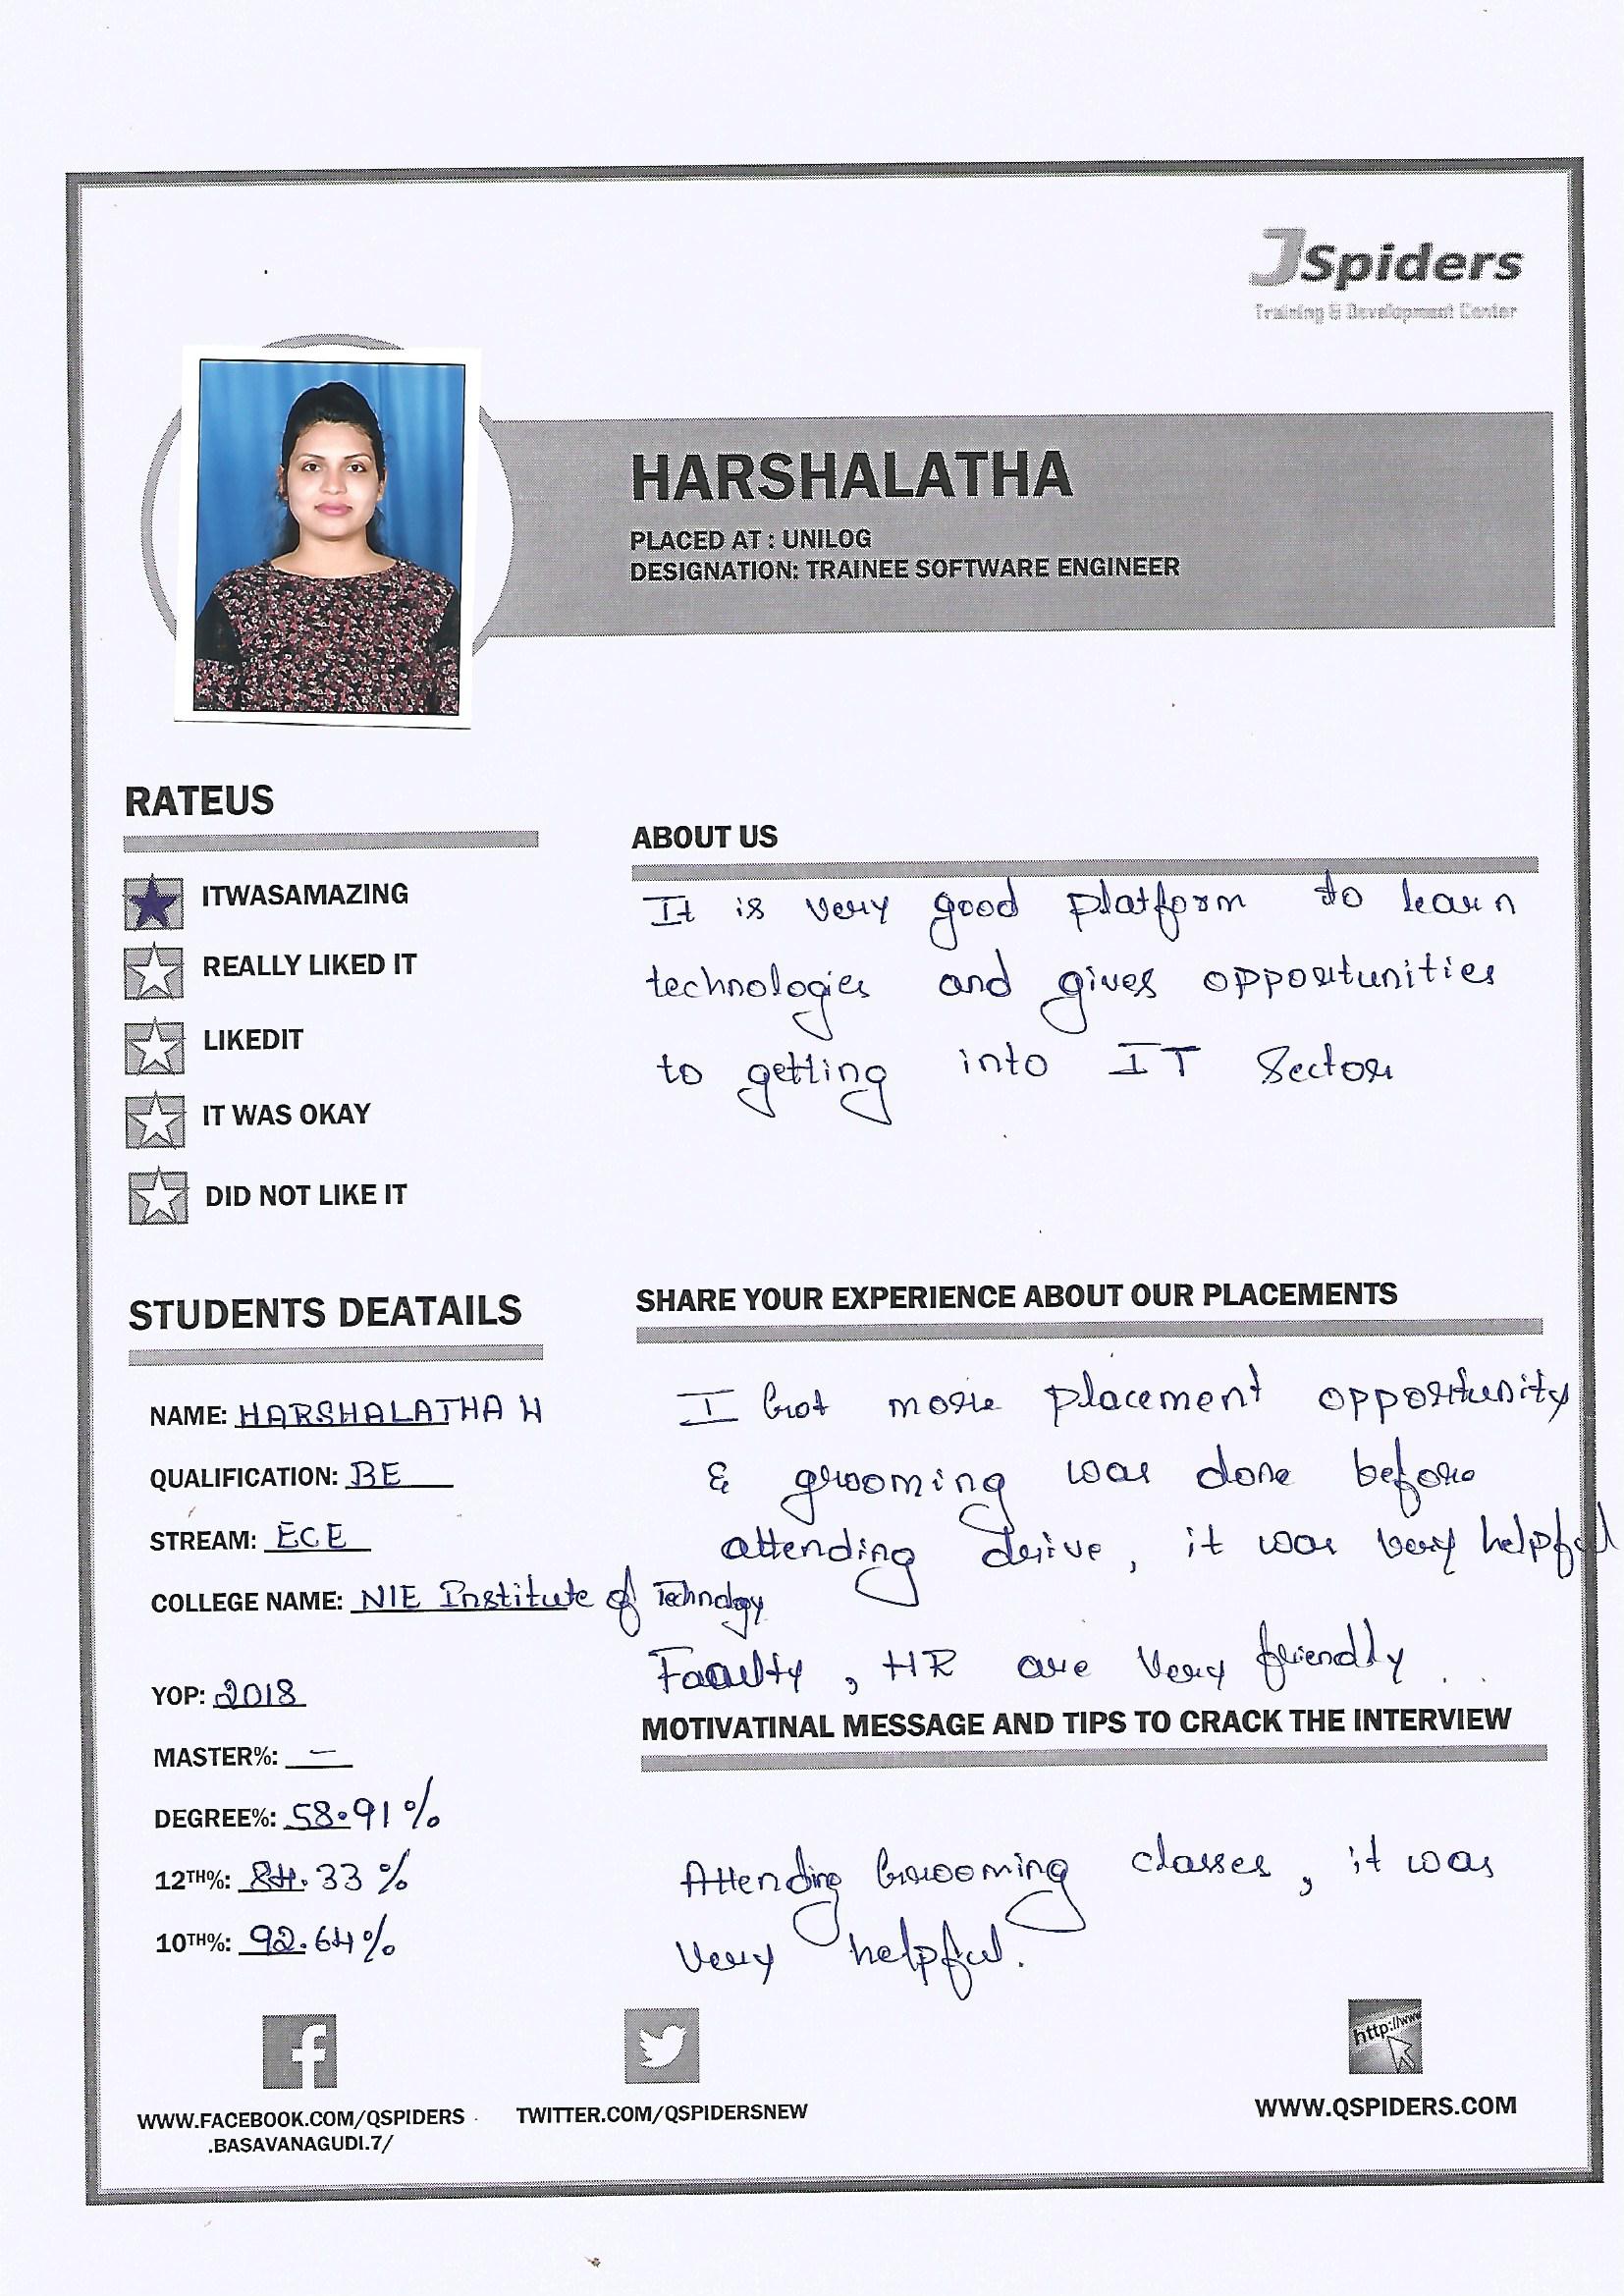 JSpiders
Training & Development Center
HARSHALATHA
PLACED AT : UNILOG
DESIGNATION: TRAINEE SOFTWARE ENGINEER
RATEUS
ITWASAMAZING
REALLY LIKED IT
LIKEDIT
IT WAS OKAY
DID NOT LIKE IT
ABOUT US
It is very good platform to learn
technologies and gives opportunities
to getting into IT Sector
STUDENTS DEATAILS
NAME: HARSHALATHA H
QUALIFICATION: BE
STREAM: ECE
COLLEGE NAME: NIE Institute of Technology
YOP: 2018
MASTER%: –
DEGREE%: 58.91%
12TH%: 84.33%
10TH%: 92.64%
SHARE YOUR EXPERIENCE ABOUT OUR PLACEMENTS
I Got more placement opportunity
& grooming was done before
attending drive, it was very helpful
Faculty, HR are very friendly ..
MOTIVATINAL MESSAGE AND TIPS TO CRACK THE INTERVIEW
Attending Grooming classes, it was
very helpful.
WWW.FACEBOOK.COM/QSPIDERS
.BASAVANAGUDI.7/
TWITTER.COM/QSPIDERSNEW
http://www
WWW.QSPIDERS.COM